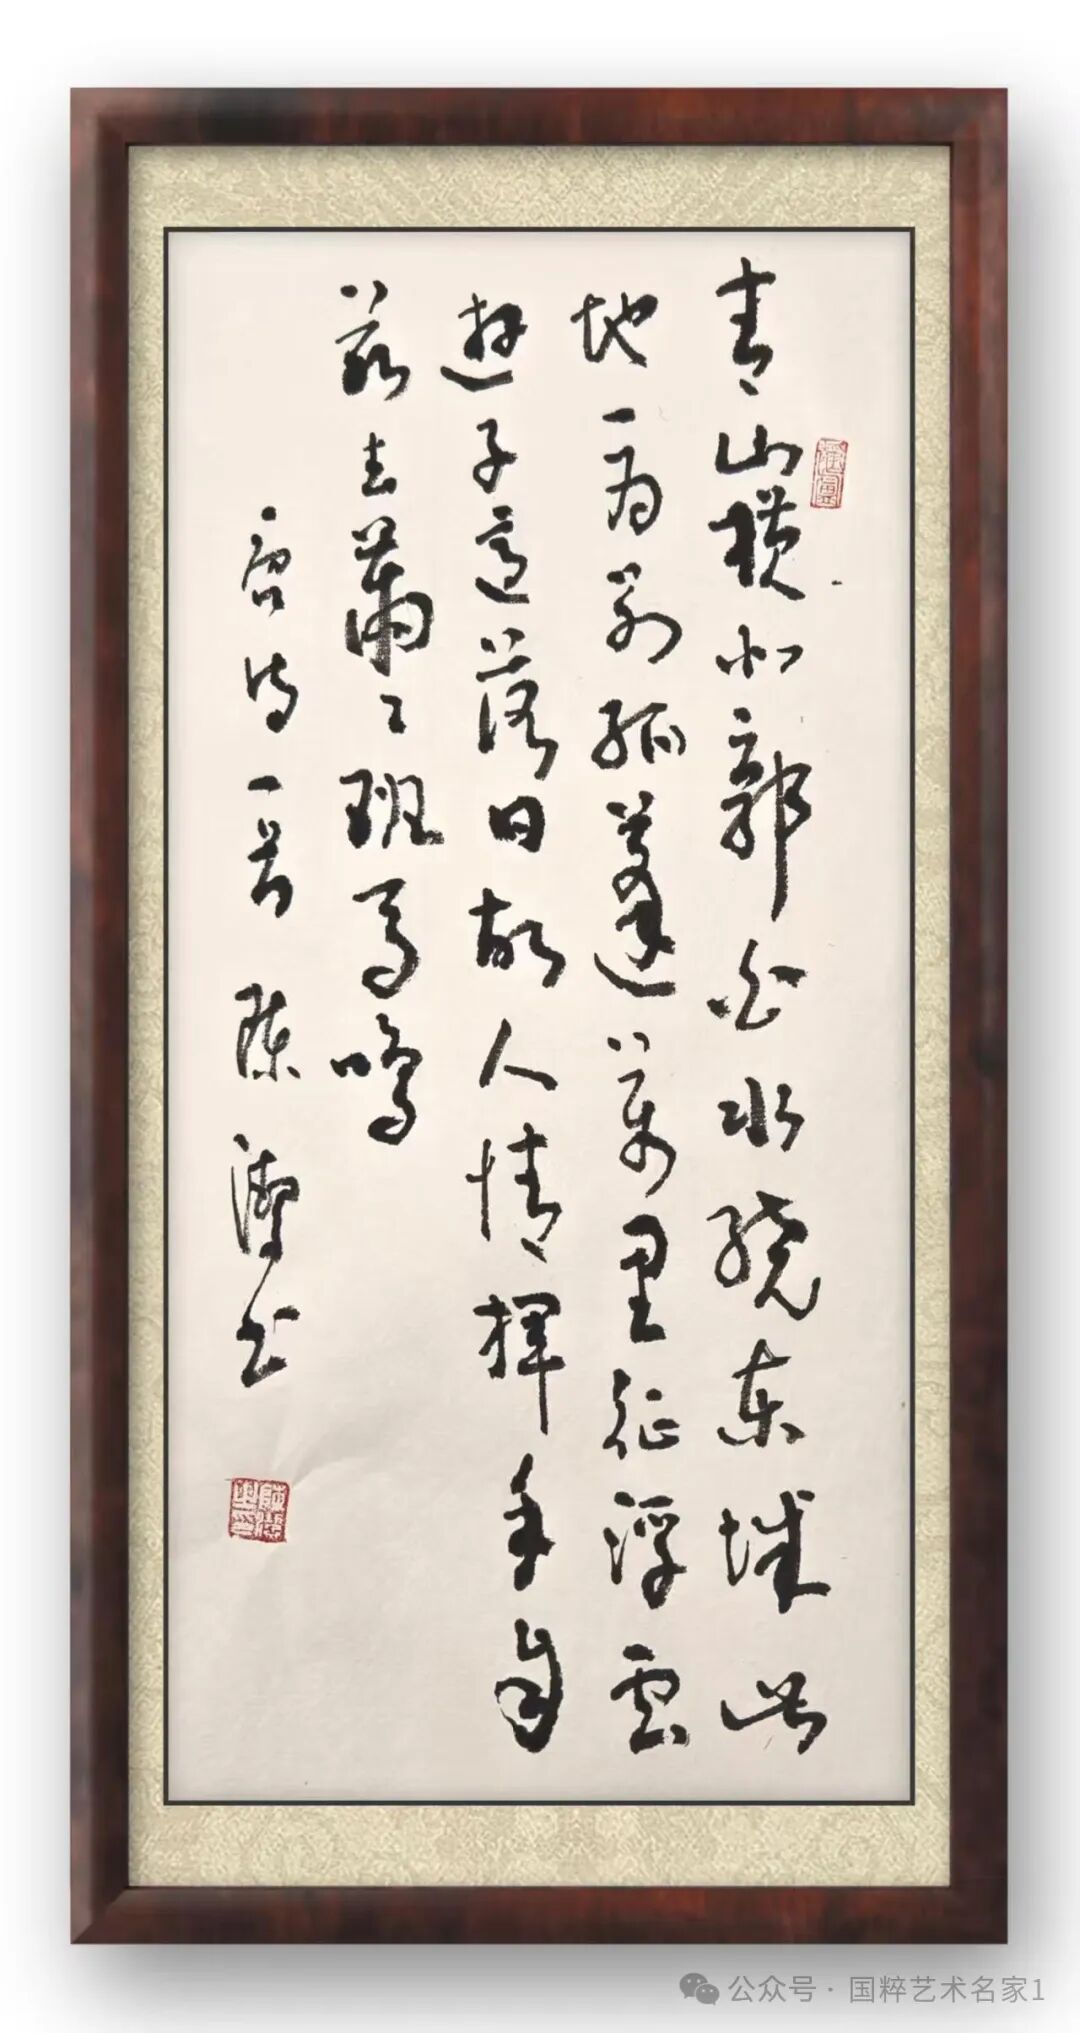 青山横北郭白水绕东城此
地一为别孤蓬萬里征浮雲
遊子意落日故人情揮手自
兹去蕭〻班马鸣
唐诗一首 陈书
公众号·国粹艺术名家1